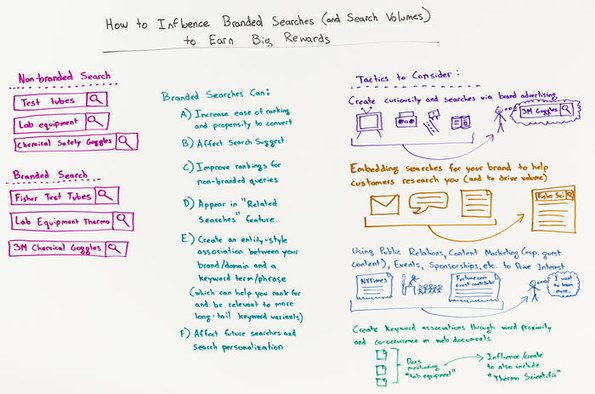 How to Influence Branded Searches (and Search Volumes)
to Earn Big Rewards
Non-branded Search
Test tubes
Lab equipment
Chemical Safety Goggles
Branded Search
Fisher Test Tubes
Lab Equipment Thermo
3M Chemical Goggles
Branded Searches Can:
A) Increase ease of ranking
and propensity to convert
B) Affect Search Suggest
C) Improve rankings for
non-branded queries
D) Appear in "Related
Searches" feature
E) Create an entity-style
association between your
brand/domain and a
keyword term/phrase
(which can help you rank for
and be relevant to more
long-tail keyword variants)
F) Affect future searches and
search personalization
Tactics to Consider:
Create curiosity and searches via brand advertising
3M Goggles
Embedding searches for your brand to help
customers research you (and to drive volume)
Fisher Sci
Using Public Relations, Content Marketing (esp. guest
content), Events, Sponsorships, etc. to Drive Interest
NYTimes
I want
to learn
more...
Create keyword associations through word proximity
and co-occurence in web documents
Docs
mentioning
"lab equipment"
Influence/create
to also include
"Thermo Scientific"